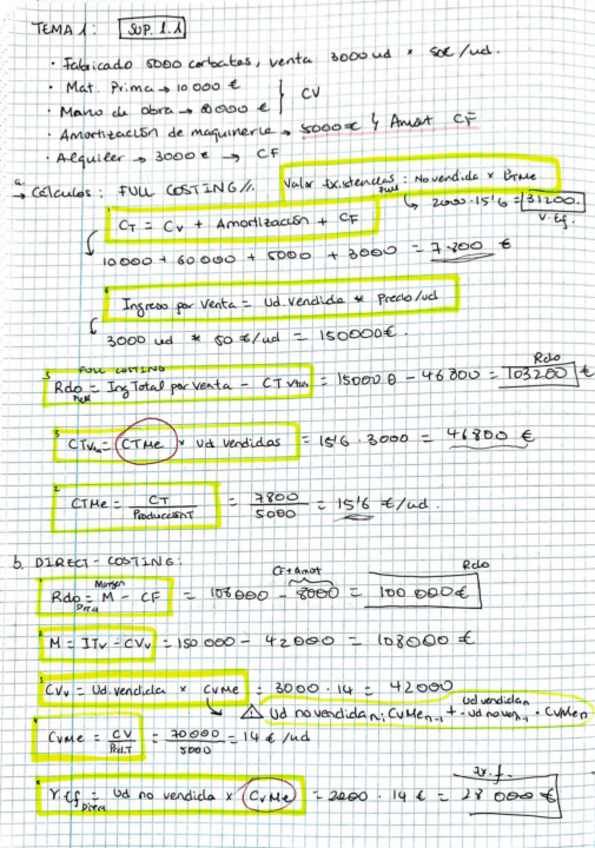 TEMA 1: SUP. 1.1
· Fabricado 5000 corbatas, venta 3000 ud * 50€/ud.
· Mat. Prima → 10 000 €
· Mano de obra → 60000 € } CV
· Amortización de maquinaria → 5000€ } Amort CF
· Alquiler → 3000 € → CF
a. → Cálculos: FULL COSTING //. Valor Existencias Full : No vendida × CTMe
↳ 2000 · 15'6 = 31200.
V. Ef.
CT = CV + Amortización + CF
10000 + 60000 + 5000 + 3000 = 7.800 €
Ingreso por Venta = Ud. Vendida * Precio/ud
3000 ud * 50 €/ud = 150000€.
FULL COSTING
Rdo
Rdo Full = Ing Total por venta - CT Vtas = 150000 - 46800 = 103200 €
3 CTVtas = CTMe × Ud Vendidas = 15'6 · 3000 = 46800 €
2 CTMe = CT / Producción T = 7800 / 5000 = 15'6 €/ud.
b. DIRECT-COSTING:
Margen
CF + Amort
Rdo
Rdo Direct = M - CF = 108000 - 8000 = 100 000€
M = ITv - CVv = 150 000 - 42000 = 108000 €
CVv = Ud. vendida × CVMe = 3000 · 14 = 42000
↳ ⚠ Ud no vendida n-1 · CVMe n-1 + Ud vendidan - ud no ven n-1 · CVMe n
CVMe = CV / Prd.T = 70000 / 5000 = 14 €/ud
V. Ef Direct = Ud no vendida × CVMe = 2000 · 14 € = 28 000 €